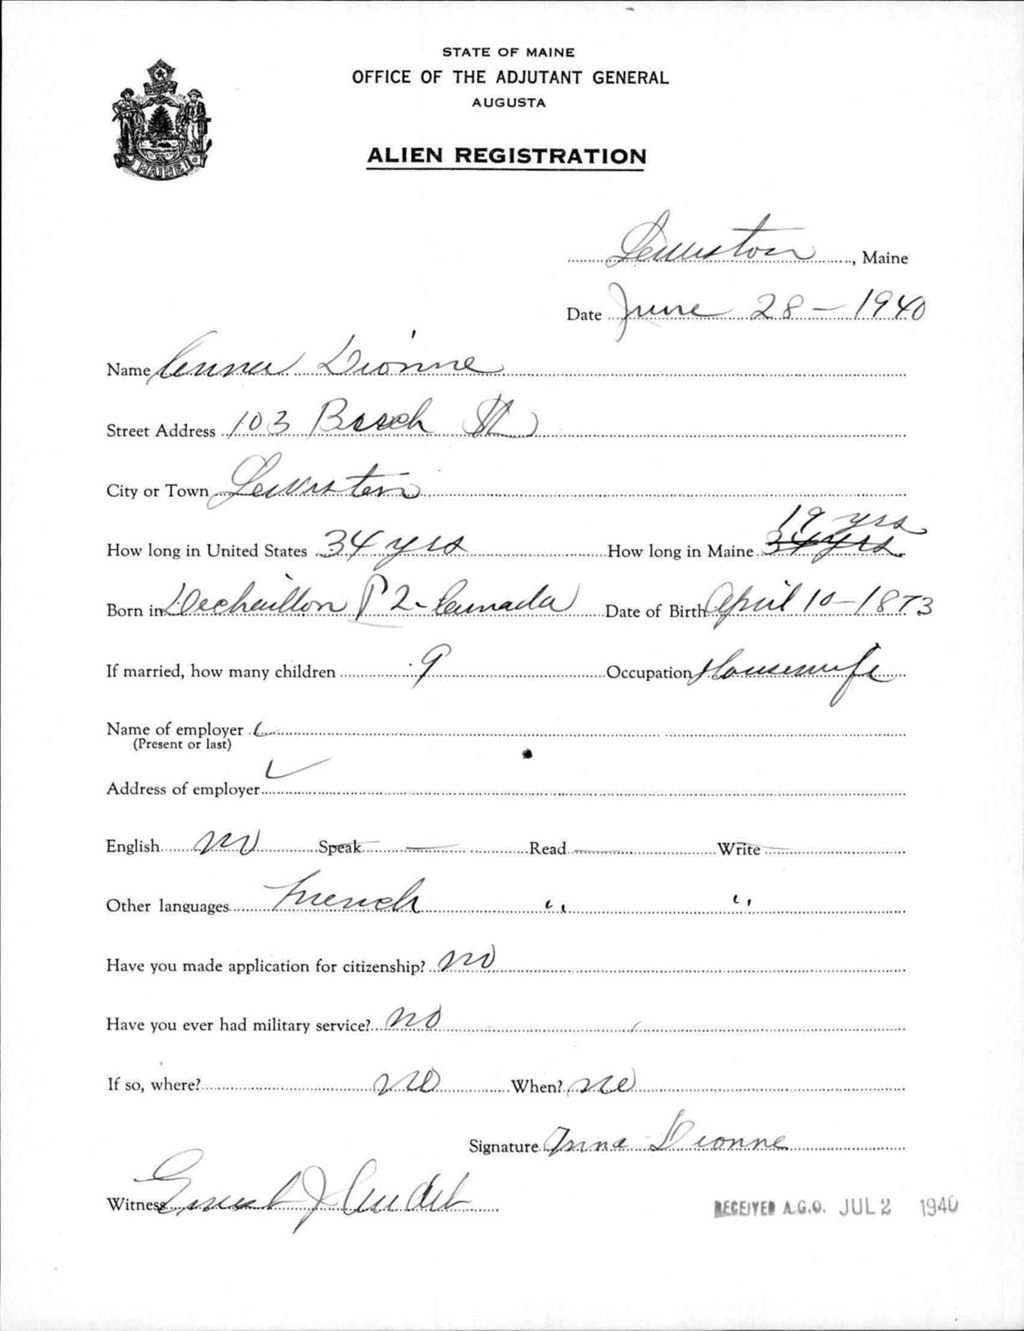 STATE OF MAINE
OFFICE OF THE ADJUTANT GENERAL
AUGUSTA
MAINE
ALIEN REGISTRATION
Lewiston, Maine
Date June 28 - 1940
Name Anna Dionne
Street Address 103 Bach St
City or Town Lewiston
How long in United States 34 yrs How long in Maine 34 yrs 19 yrs
Born in Dechaillon P2 - Canada Date of Birth April 10 - 1873
If married, how many children 9 Occupation Housewife
Name of employer
(Present or last)
Address of employer
English no Speak — Read — Write —
Other languages French " "
Have you made application for citizenship? no
Have you ever had military service? no
If so, where? no When? no
Signature Anna Dionne
Witness Ernest J
RECEIVED A.G.O. JUL 2 1940